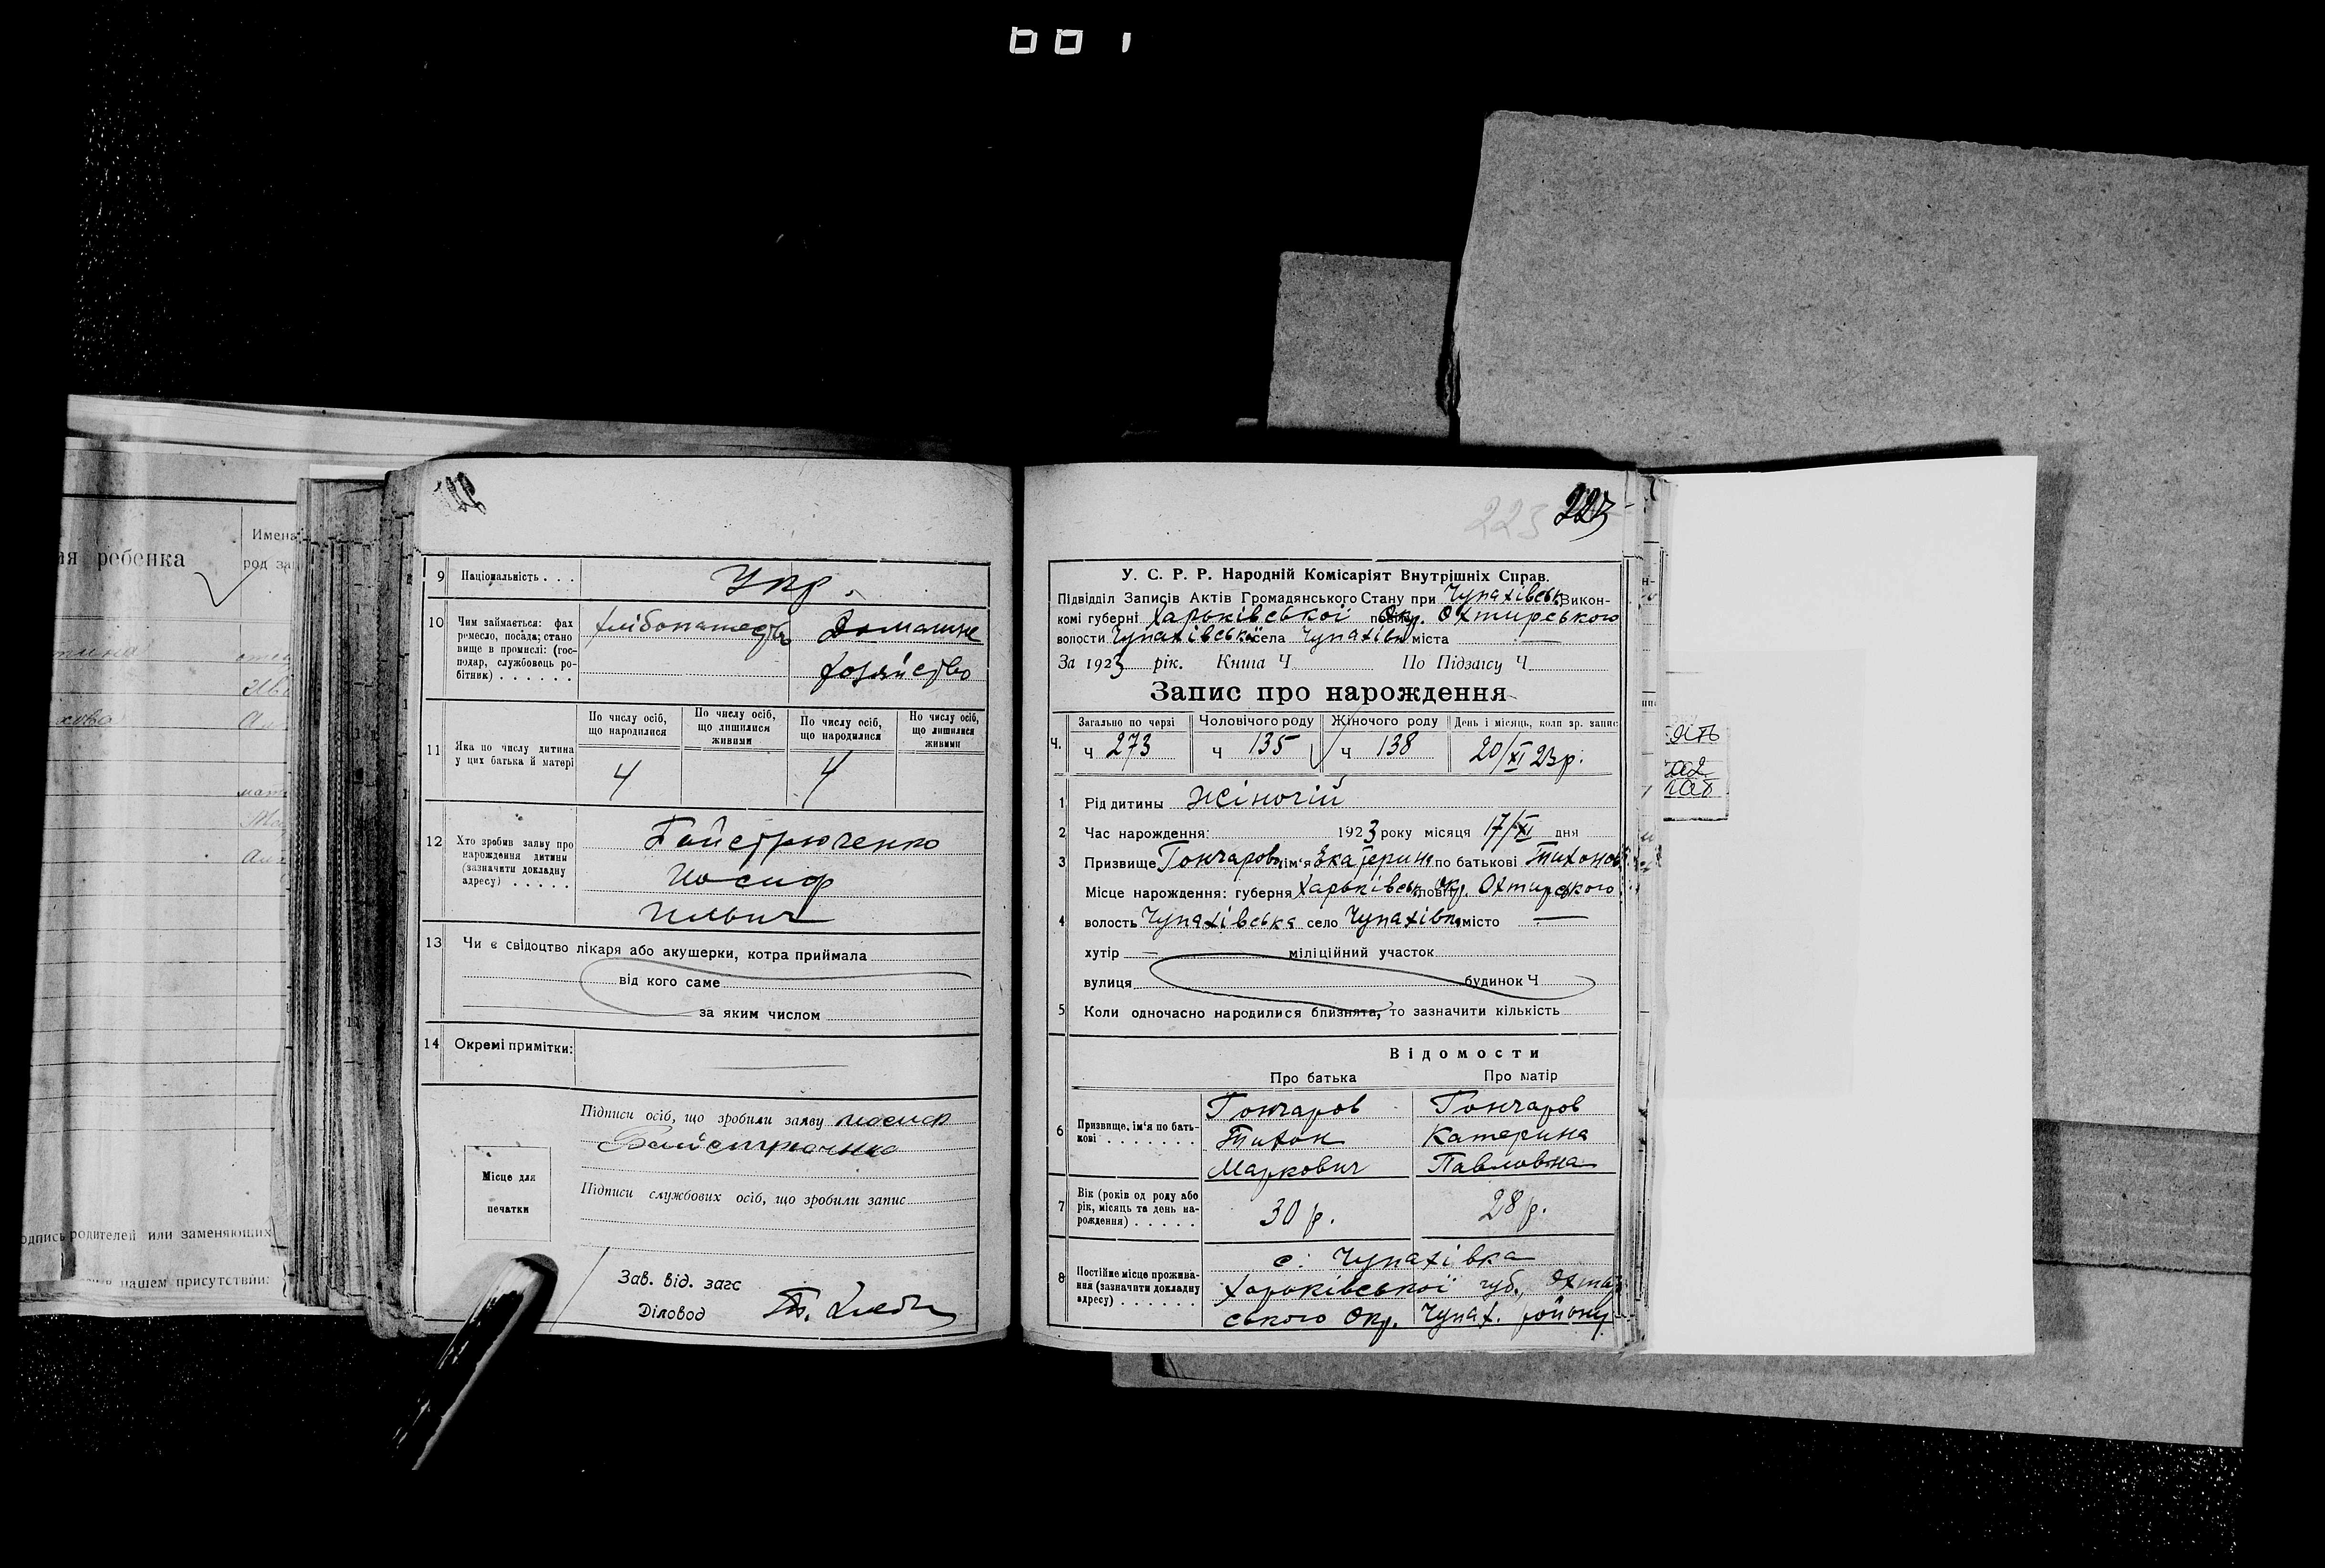 я ребенка
Имена
род за
одпись родителей или заменяющих
в нашем присутствии:
9 Національність . . . Укр.
10 Чим займається: фах
ремесло, посада; стано
вище в промислі: (гос-
подар, службовець ро-
бітник) . . . . . .
Домашнє
хозяйство
11 Яка по числу дитина
у цих батька й матері
По числу осіб,
що народилися
По числу осіб,
що лишилися
живими
По числу осіб,
що народилися
По числу осіб,
що лишилися
живими
4 4
12 Хто зробив заяву про
нарождення дитини
(зазначити докладну
адресу) . . . . .
Байстрюченко
Иосиф
Ильич
13 Чи є свідоцтво лікаря або акушерки, котра приймала
від кого саме
за яким числом
14 Окремі примітки:
Підписи осіб, що зробили заяву Иосиф
Байстрюченко
Підписи службових осіб, що зробили запис
Місце для
печатки
Зав. від. загс
Діловод
223 223
У. С. Р. Р. Народній Комісаріят Внутрішніх Справ.
Підвідділ Записів Актів Громадянського Стану при Чупахівськ Викон-
комі губерні Харьківської повіту Окр. Охтирського
волости Чупахівської села Чупахівки міста —
За 1923 рік. Книга Ч. По Підзагсу Ч.
Запис про нарождення
Ч. Загально по черзі Чоловічого роду Жіночого роду День і місяць, коли зр. запис
Ч 273 Ч 135 Ч 138 20/XI 23р.
1 Рід дитини Жіночій
2 Час нарождення: 1923 року місяця 17/XI дня
3 Призвище Гончарова ім'я Екатерина по батькові Тихонов
Місце нарождення: губерня Харьківськ повіту Окр. Охтирського
4 волость Чупахівська село Чупахівка місто —
хутір — міліційний участок
вулиця будинок Ч
5 Коли одночасно народилися близнята, то зазначити кількість
Відомости
Про батька Про матір
6 Призвище, ім'я по бать-
кові . . . . . . . .
Гончаров Гончаров
Тихон Катерина
Маркович Павловна
7 Вік (років од роду або
рік, місяць та день на-
рождення) . . . . .
30 р. 28 р.
8 Постійне місце прожива-
ння (зазначити докладну
адресу) . . . . . . .
с. Чупахівка
Харьківської губ. Охтир
ського Окр. Чупах. району